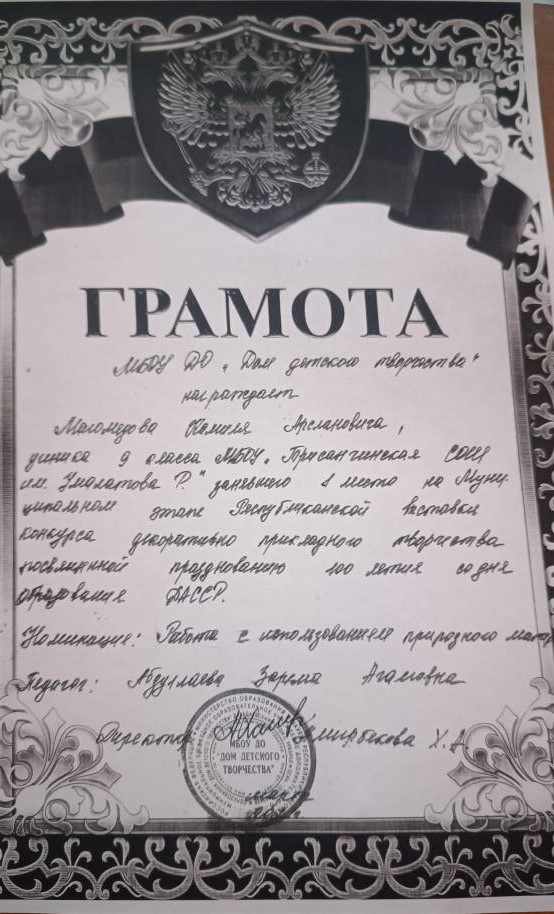 ГРАМОТА
МБОУ ДО „Дом детского творчества"
награждает
Магомедова Камиля Арслановича,
ученика 9 класса МБОУ „Трисанчинская СОШ
им. Умалатова Р." занявшего 1 место на Муни
ципальном этапе Республиканской выставки
конкурса декоративно прикладного творчества
посвященной празднованию 100 летия со дня
образования ДАССР.
Номинация: Работа с использованием природного матер
Педагог: Абдуллаева Зарема Агаповна
Директор Х.А.
МБОУ ДО
"ДОМ ДЕТСКОГО
ТВОРЧЕСТВА"